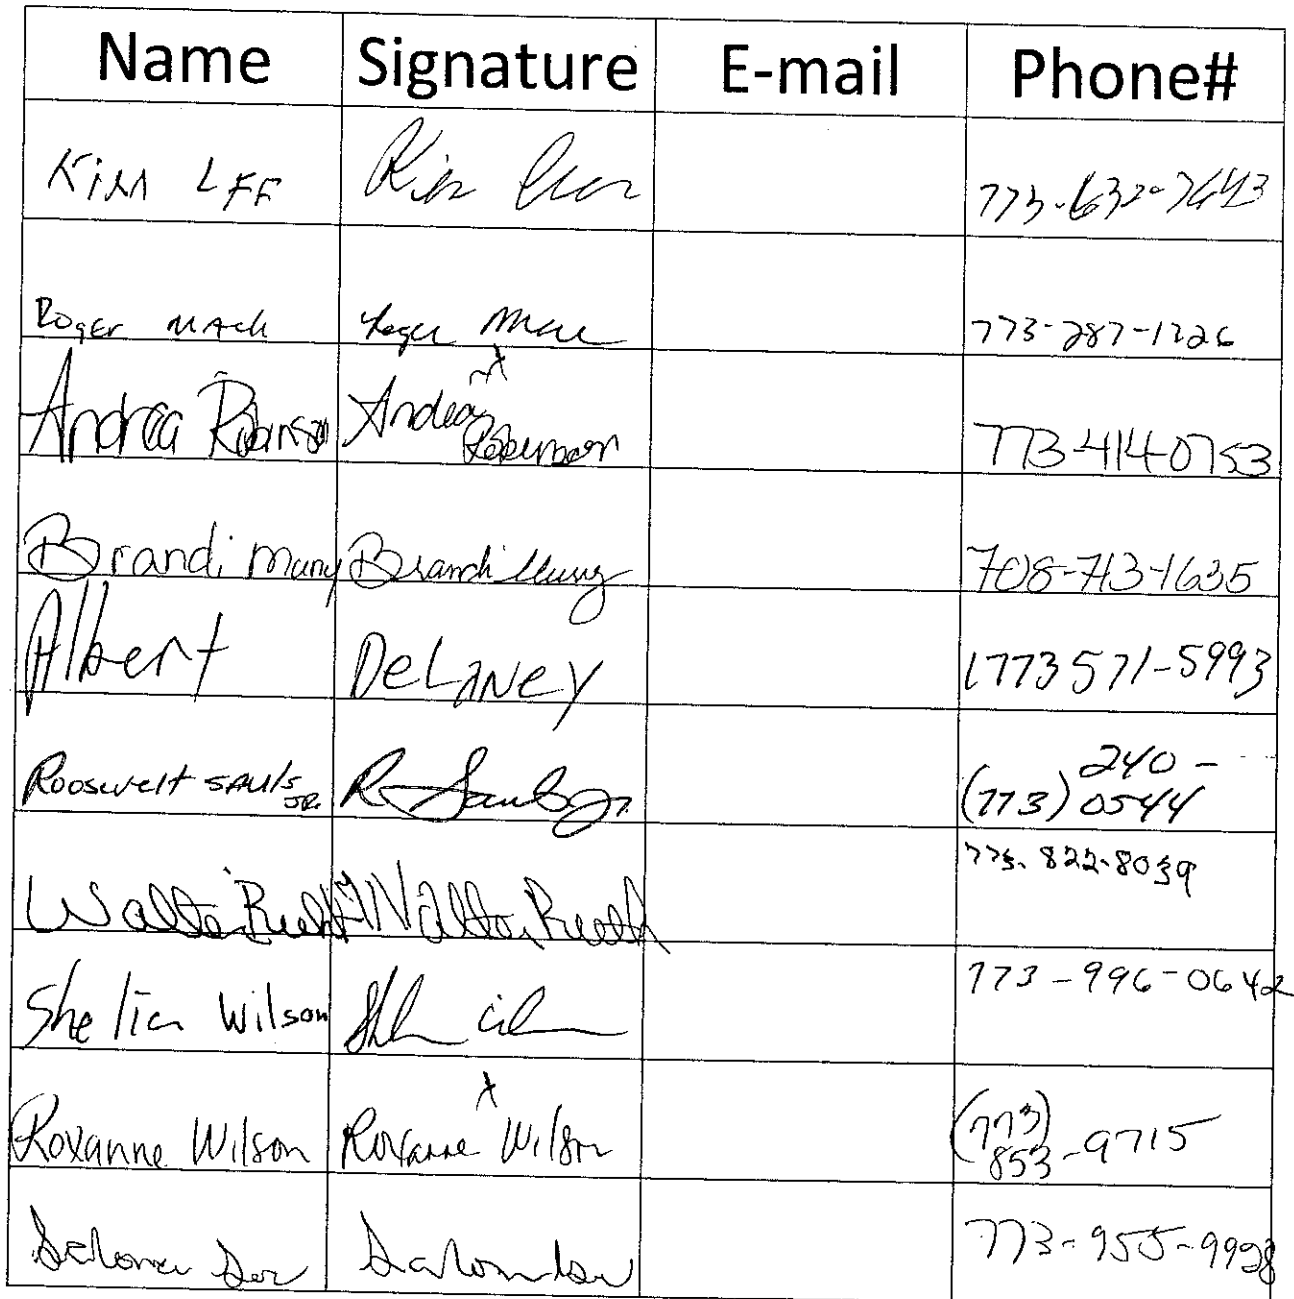 Name Signature E-mail Phone#
Kim LEE Kim 773-632-7643
Roger Mack Roger Mack 773-287-1226
x
Andrea Robinson Andrea Robinson 773-414-0753
Brandi Muny Brandi Muny 708-713-1635
Albert DeLANey 1773571-5993
Roosevelt SAULS JR. R Sauls Jr. (773) 240-0544
Walter Walter 773-822-8039
Shelia Wilson 773-996-0642
x
Roxanne Wilson Roxanne Wilson (773) 853-9715
773-955-9928